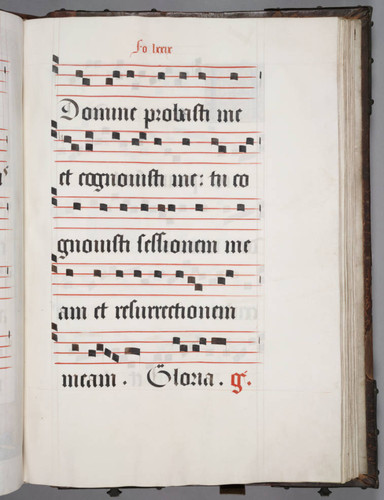 Fo lxxix
Domine probasti me
et cognovisti me: tu co
gnovisti sessionem me
am et resurrectionem
meam. Gloria. g.